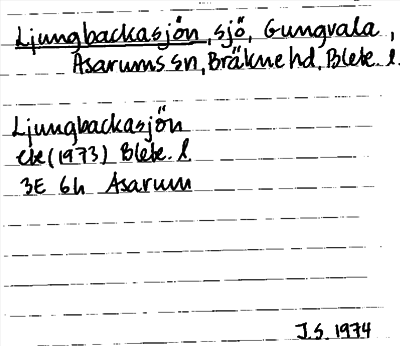 Ljungbackasjön, sjö, Gungvala,
Asarums sn, Bräkne hd, Blek. l.
Ljungbackasjön
ek (1973) Blek. l.
3E 6h Asarum
J.S. 1974